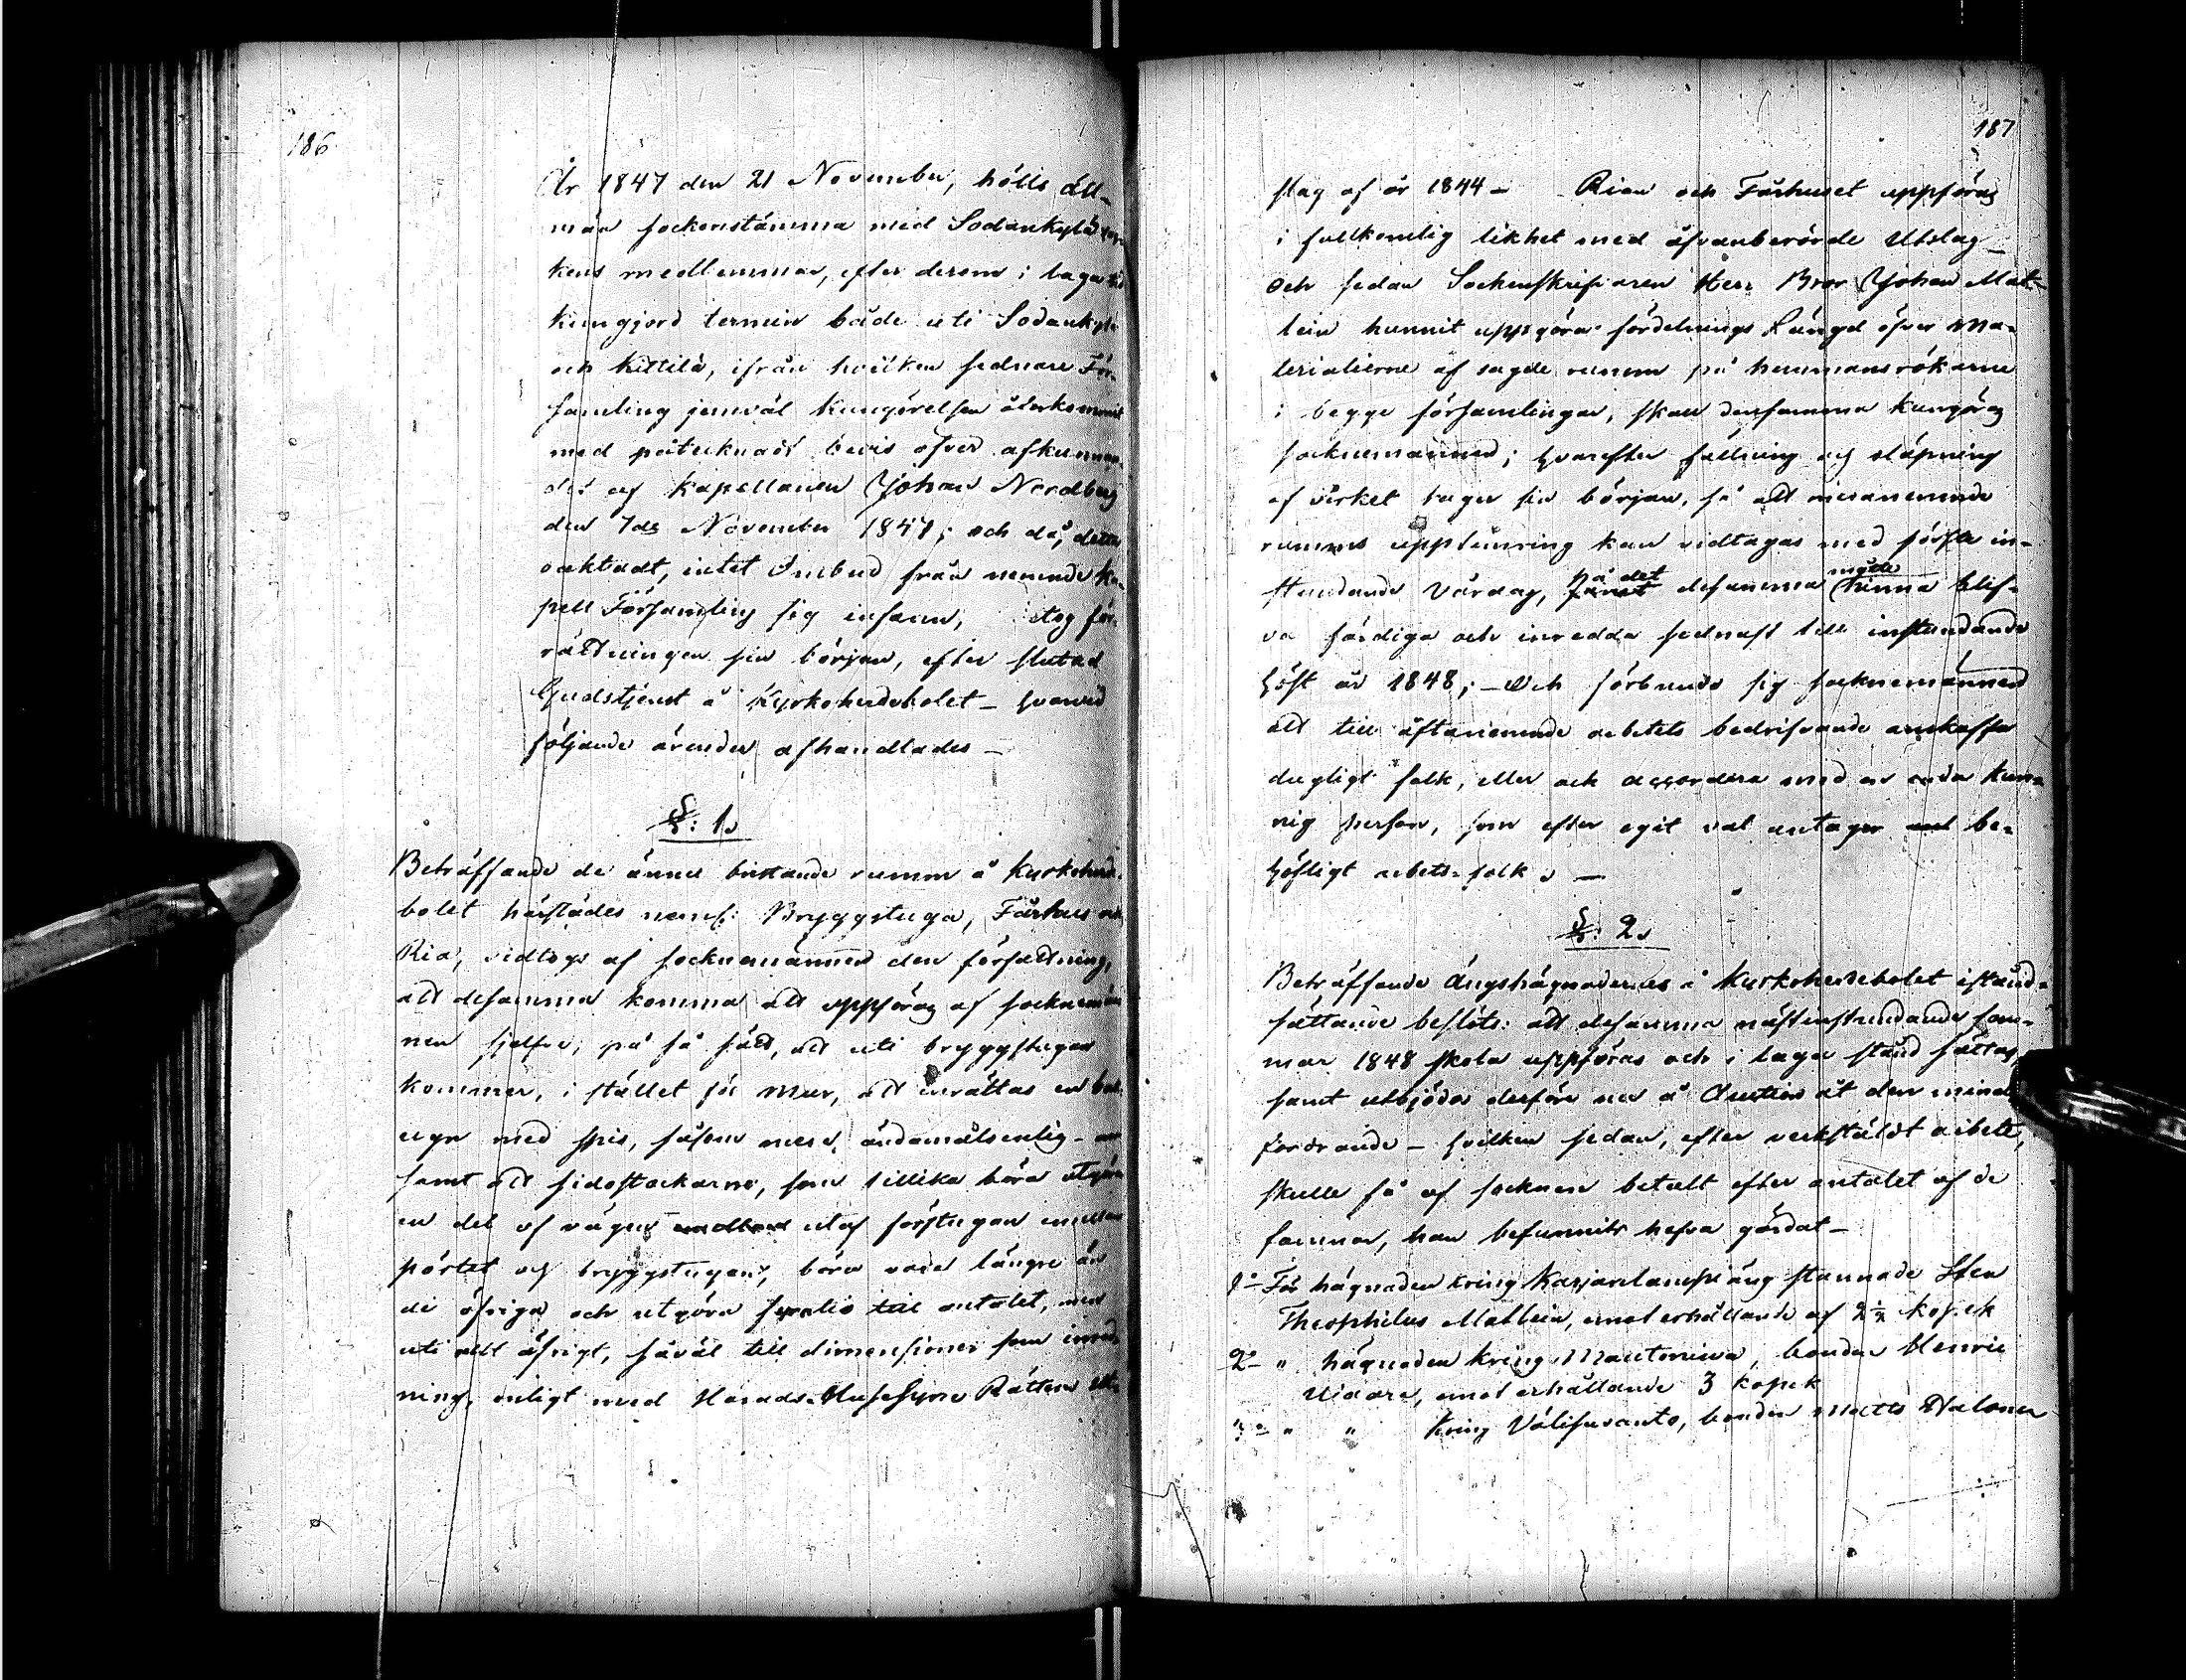 186.
År 1847 den 21 November, hölls all-
män sockenstämma med Sodankylä
kens medlemmar, efter derom i laga tid
kungjord termin både uti Sodankylä
och Kittilä, ifrån hvilken sednare För-
samling jemväl kungörelsen återkommit
med påtecknadt bevis öfver afkunnan-
det af Kapellanen Johan Nordberg
den 7de November 1847; och då, detta
oaktadt, intet Ombud från nemnde Ka-
pell Församling sig infann, tog för-
rättningen sin början, efter slutad
Gudstjenst å Kyrkoherdebolet – hvarvid
följande ärender afhandlades –
§: 1.
Beträffande de ännu bristande rumm å Kyrkoherde-
bolet härstädes neml: Bryggstuga, Fårhus och
Ria, vidtogs af socknemännen den författning,
att desamma komma att uppföras af socknemän-
nen sjelfve, på så sätt, att uti bryggstugan
kommer, i stället för mur, att inrättas en bak-
ugn med spis, såsom mera ändamålsenlig –
samt att sidostockarne, som tillika böra utgöra
en del af vägen utaf förstugan emellan
pörtet och bryggstugan, böra vara längre än
de öfriga och utgöra till antalet, men
uti allt öfrigt, såväl till dimensioner som inred-
ning, enligt med Härads Husesyns Rättens Ut-
187
slag af år 1844 – Rian och Fårhuset uppföras
i fullkomlig likhet med ofvanberörde Utslag –
Och sedan Sockenskrifvaren Herr Bror Johan Mat-
lein hunnit uppgöra fördelnings Längd öfver Ma-
terialierne af sagde rumm på hemmansrökarne
i begge församlingar, skall densamma kungöras
socknemännen; hvarefter fällning och släpning
af virket tager sin början, så att merannemnde
rumms upptimring kan vidtagas med första in-
stundande vårdag, på det desamma måtte hinna blif-
va färdiga och inredda sednast till instundande
höst år 1848; – Och förbundo sig socknemännen
att till oftanemnde arbetets bedrifvande anskaffa
dugligt folk, eller ock accordera med en enda kun-
nig person, som efter egit val antager be-
höfligt arbets-folk. –
§: 2.
Beträffande Ängshägnadernes å Kyrkoherdebolet istånd-
sättande beslöts: att desamma nästinstundande som-
mar 1848 skola uppföras och i laga stånd sättas,
samt utbjödos desföre nu å Auction åt den minst
fordrande – hvilken sedan, efter verkställdt arbete,
skulle få af socknen betalt efter antalet af de
famnar, han befunnits hafva gärdat –
1o För hägnaden kring Karjanlampi äng stannade Sten
Theophilus Matlein, emot erhållande af 2½ kopek
2o " hägnaden kring Mantoniva, bonden Henric
, emot erhållande 3 kopek
3o " " kring Välisuvanto, bonden Matts Halonen